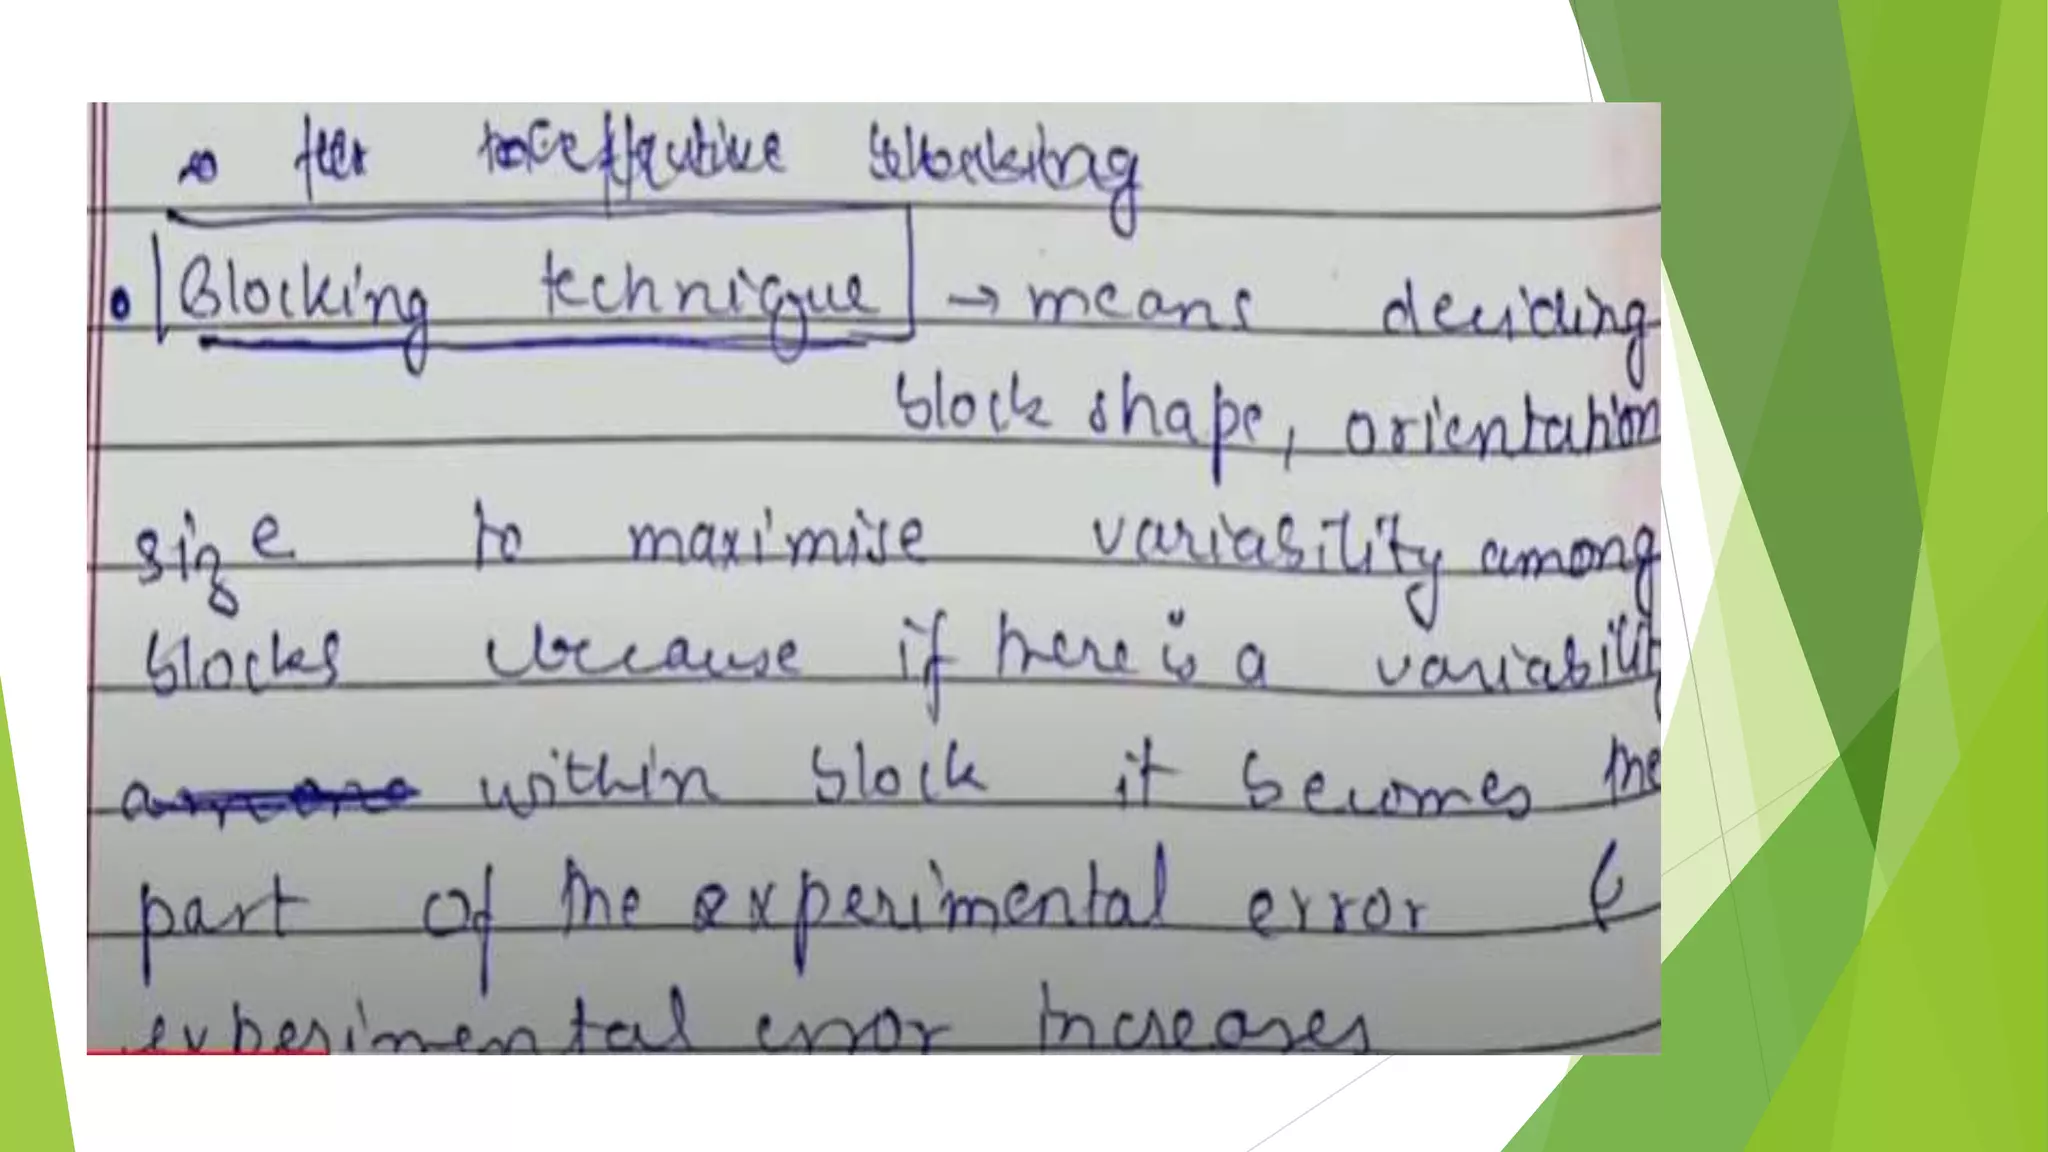 → for effective blocking
• Blocking technique → means deciding
block shape, orientation
size to maximise variability among
blocks because if there is a variability
within block it becomes the
part of the experimental error &
experimental error increases